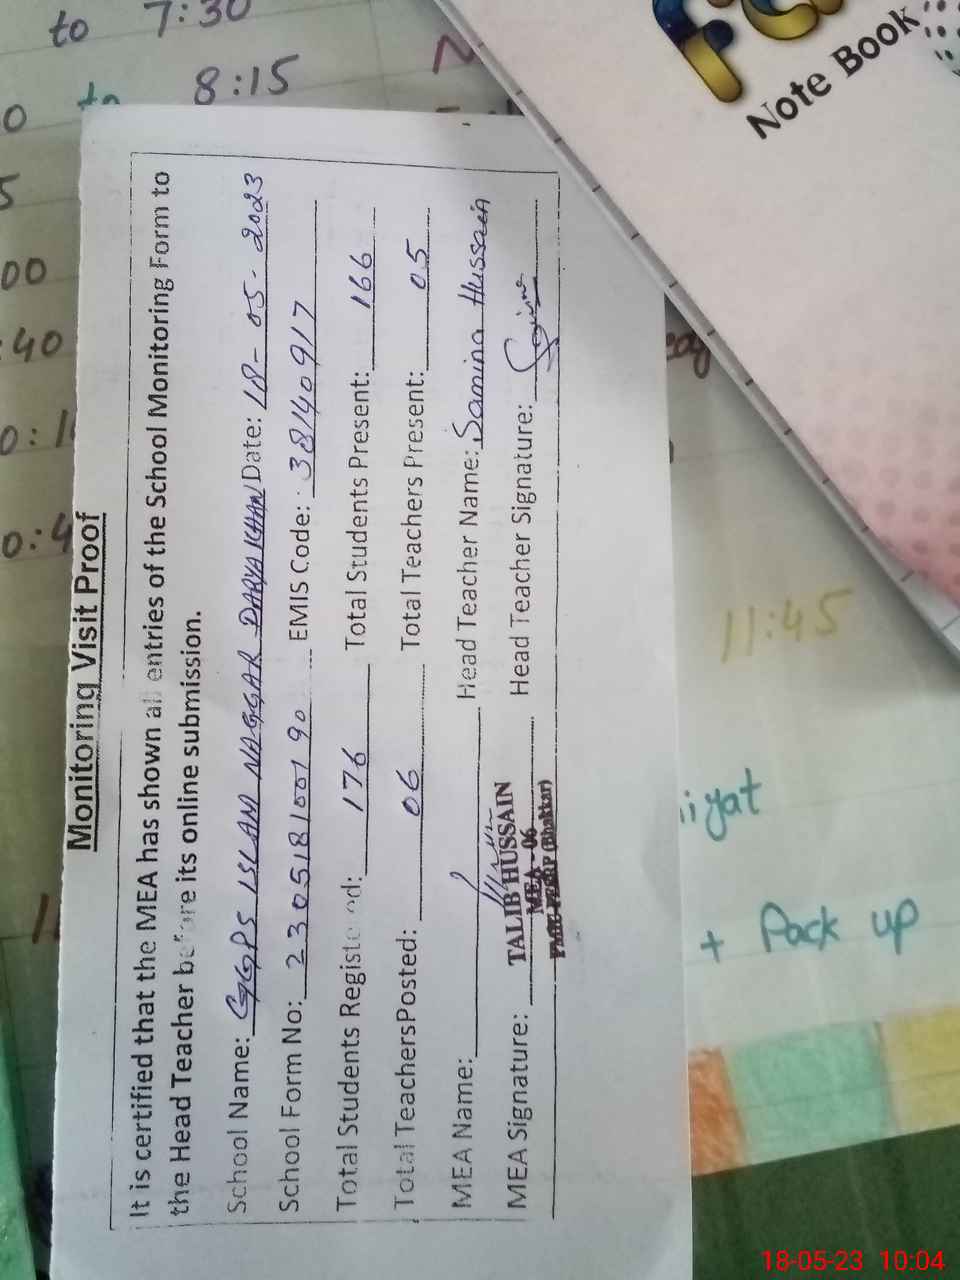 Monitoring Visit Proof
It is certified that the MEA has shown all entries of the School Monitoring Form to
the Head Teacher before its online submission.
School Name: GGPS ISLAM NAGGAR DARYA KHAN Date: 18-05-2023
School Form No: 23051810190 EMIS Code: 38140917
Total Students Registered: 176 Total Students Present: 166
Total TeachersPosted: 06 Total Teachers Present: 05
MEA Name: Head Teacher Name: Samina Hussain
MEA Signature: Head Teacher Signature:
TALIB HUSSAIN
MEA - 06
(Bhakkar)
to 7:30
to 8:15
00
:40
Note Book
11:45
iyat
+ Pack up
18-05-23 10:04